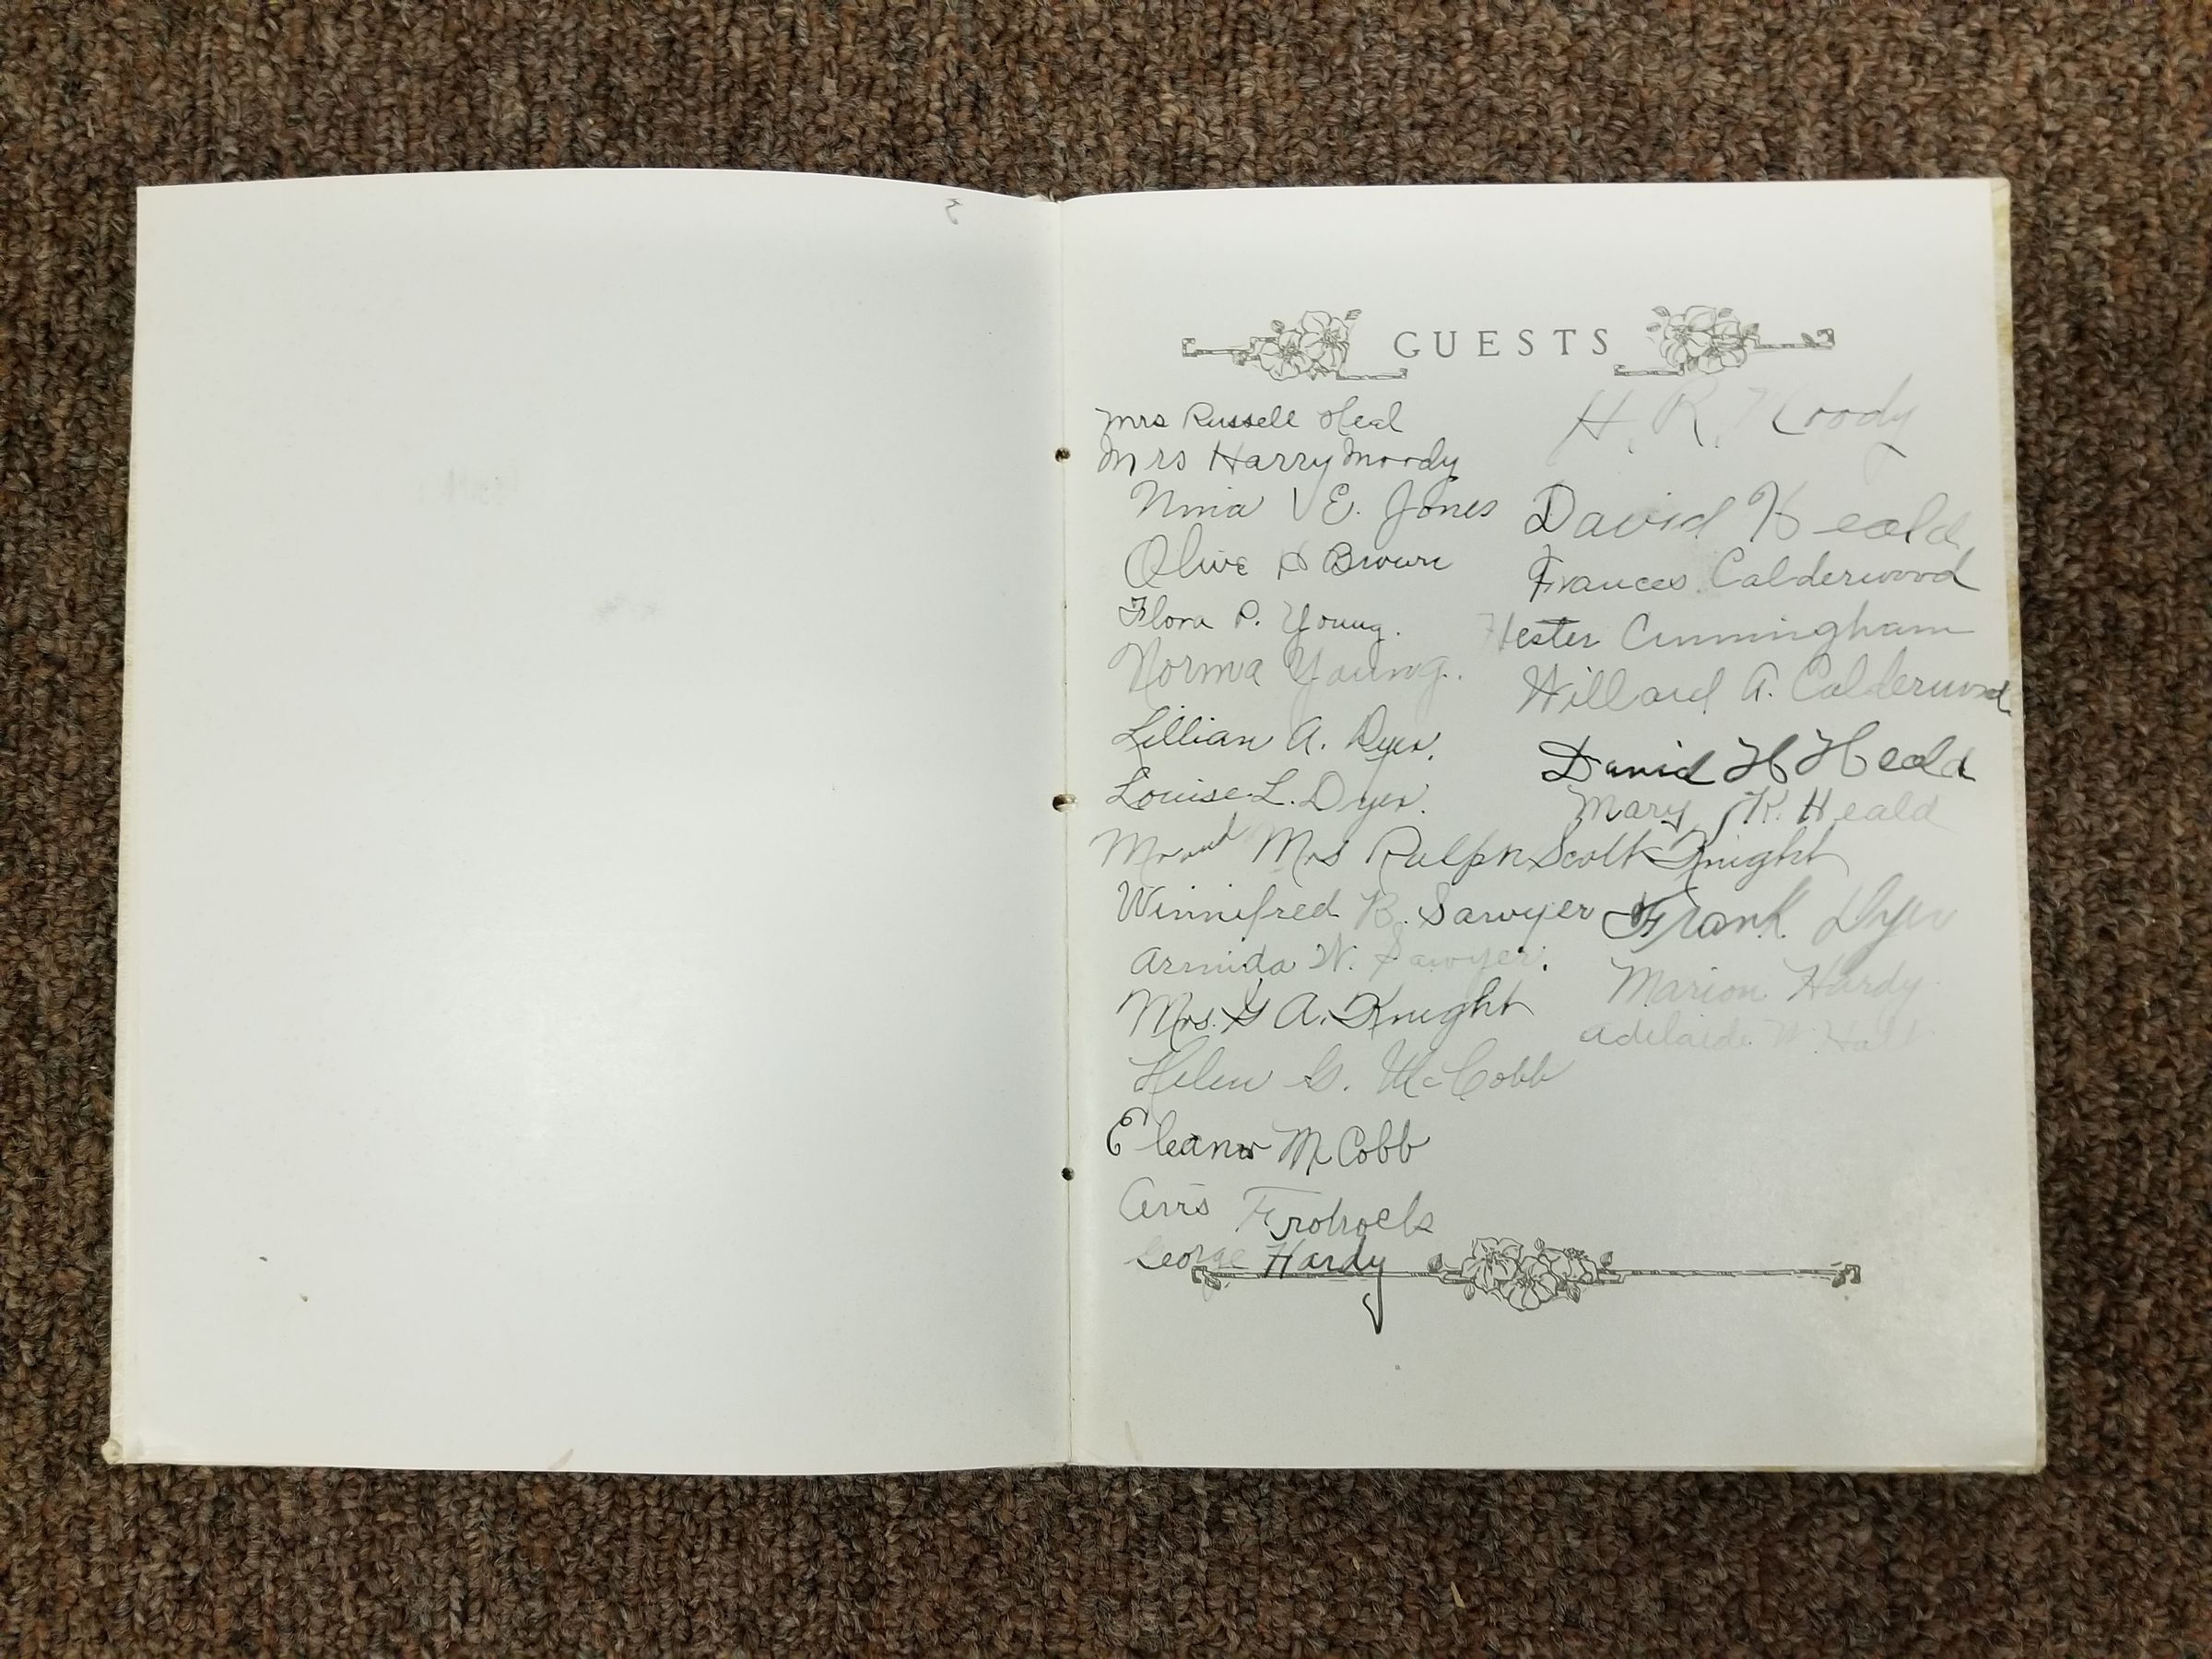 3
GUESTS
Mrs Russell Heal
Mrs Harry Moody
Nina V E. Jones
Olive A Brown
Flora P. Young.
Norma Young.
Lillian A. Dyer.
Louise L. Dyer.
Mr and Mrs Ralph Scott Knight
Winnifred B. Sawyer
Armida W. Sawyer.
Mrs. G A. Knight
Helen G. McCobb
Eleanor McCobb
George Hardy
H. R. Moody
David Heald
Frances Calderwood
Hester Cunningham
Willard A. Calderwood
David H Heald
Mary K. Heald
Frank Dyer
Marion Hardy
Adelaide